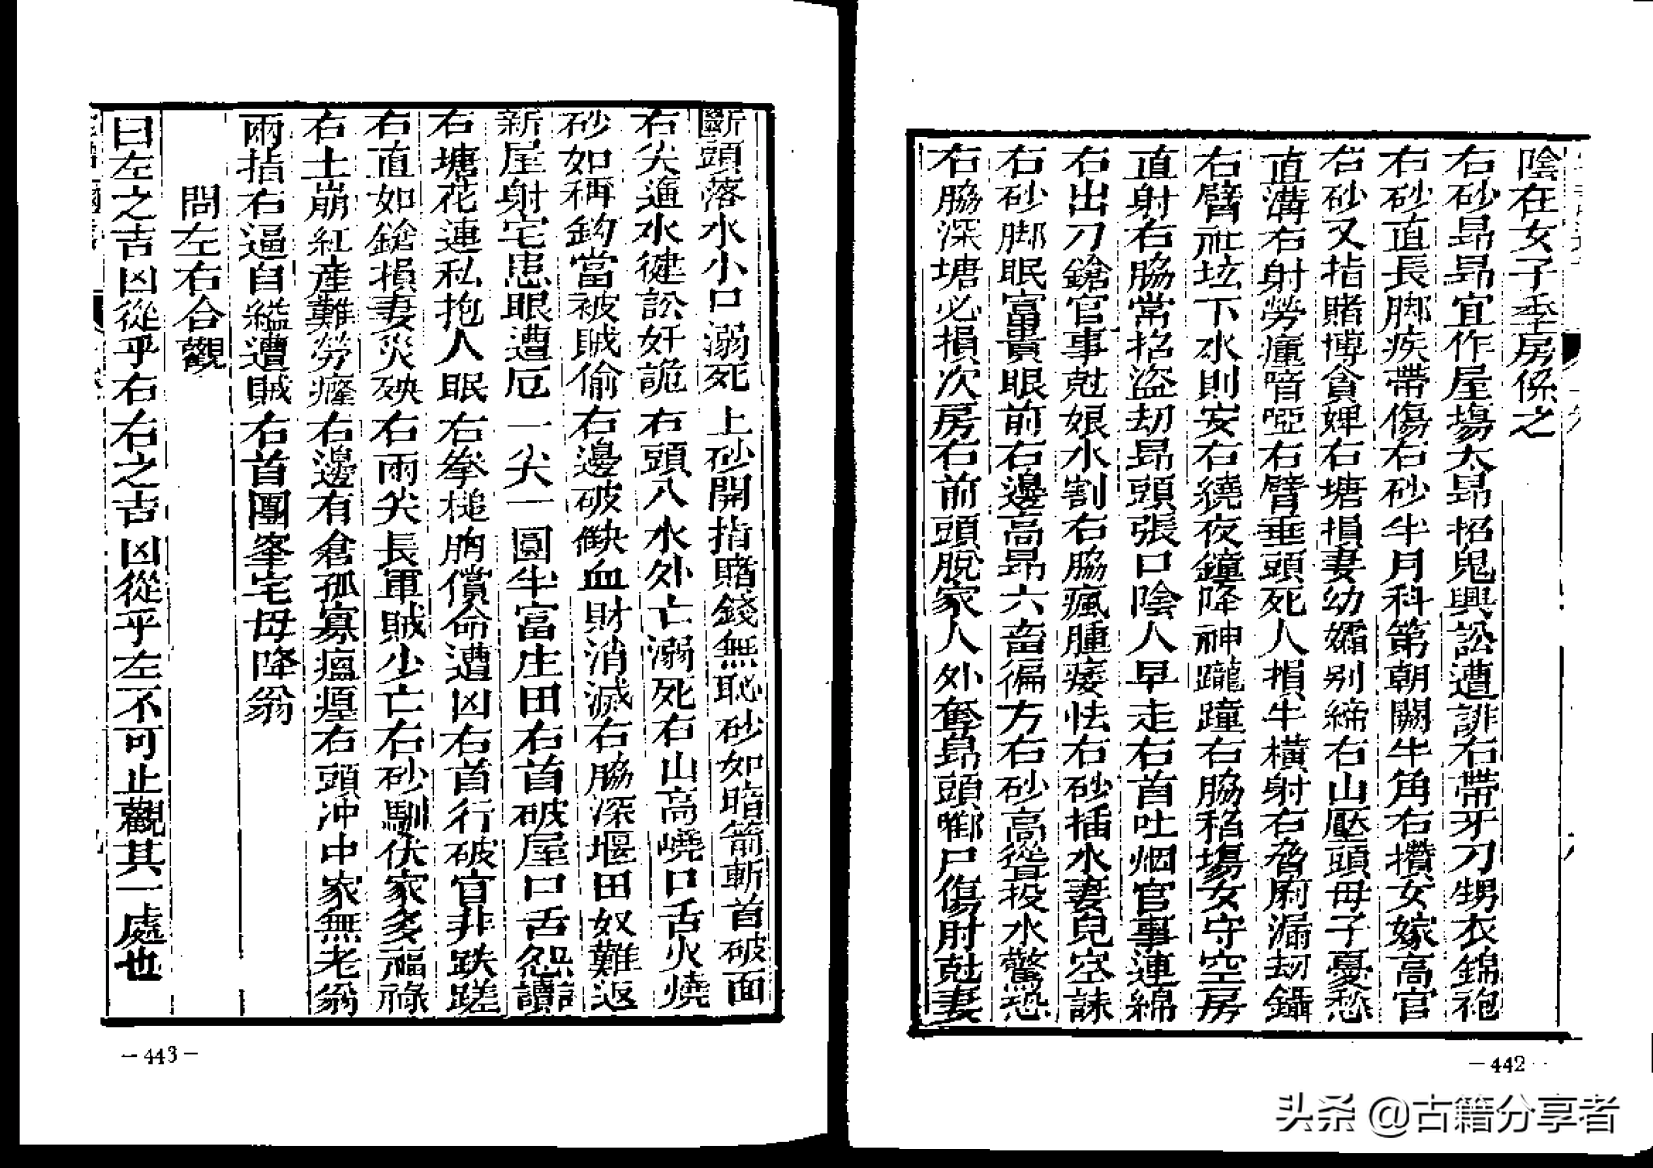 陰在女子季房係之
右砂昻昻宜作屋塲太昻招鬼興訟遭誹右帶牙刀甥衣錦袍
右砂直長脚疾帶傷右砂半月科第朝關牛角右攢女嫁高官
右砂又指賭博貪婢右塘損妻幼孀别締右山壓頭母子憂愁
直溝右射勞瘇喑啞右臂垂頭死人損牛橫射右脅廚漏刧鑷
右臂社坛下水則安右繞夜鐘降神蹣蹱右脇稻塲女守空房
直射右脇常招盜刧昻頭張口陰人早走右首吐烟官事連綿
右出刀鎗官事尅娘水割右脇瘋腫痿怯右砂插水妻兒空誄
右砂脚眠富貴眼前右邊高昻六畜偏方右砂高聳投水驚恐
右脇深塘必損次房右前頭脫家人外奪昻頭啣尸傷肘尅妻
－442－
斷頭落水小口溺死上砂開指賭錢無恥砂如暗箭斬首破面
右尖通水徤訟奸詭右頭八水外亡溺死右山高嶢口舌火燒
砂如稱鈎當被賊偷右邊破缺血財消滅右脇深堰田奴難返
新屋射宅患眼遭厄一尖一圓牛富庄田右首破屋口舌怨讟
右塘花連私抱人眠右拳槌胸償命遭凶右首行破官非跌蹉
右直如鎗損妻災殃右兩尖長軍賊少亡右砂馴伏家多福祿
右土崩紅產難勞癃右邊有倉孤寡瘟㾮右頭冲中家無老翁
兩指右逼自縊遭賊右首團峯宅母降翁
問左右合觀
曰左之吉凶從乎右右之吉凶從乎左不可止觀其一處也
－443－
头条 @古籍分享者